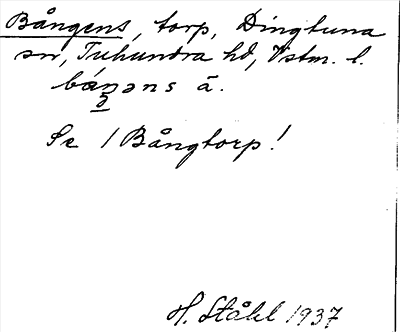 Bångens, torp, Dingtuna
sn, Tuhundra hd, Vstm. l.
båŋəns ā.
Se 1 Bångtorp!
H. Ståhl 1937